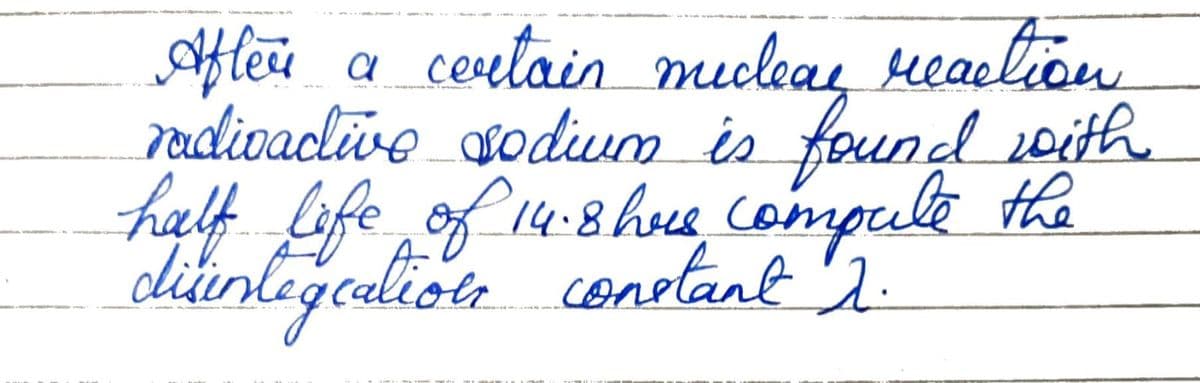 After a certain nuclear reaction
radioactive sodium is found with
half life of 14.8 hrs compute the
disintegration constant λ.